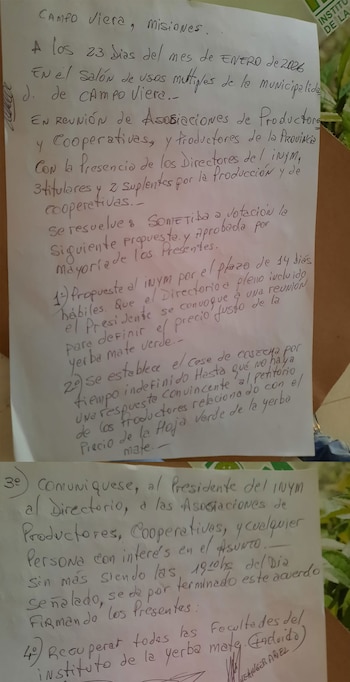 CAMPO Viera, Misiones.
A los 23 Dias del mes de ENERO de 2026
EN el salón de usos multiples de la municipalida
d. de CAMPO Viera.-
EN REUNIÓN de Asociaciones de Productores
y Cooperativas, y Productores de la Provincia
CON la Presencia de los Directores del INYM,
3 titulares y 2 Suplentes por la Producción y de
cooperativas.-
se resuelve: SOMETIDA a votación la
siguiente propuesta y aprobada por
mayoria de los Presentes.
1º) Propuesta al INYM por el plazo de 14 dias
hábiles Que el Directorio a pleno incluido
el Presidente se convoque a una reunión
para definir el precio justo de la
yerba mate verde.-
2º) se establece el cese de cosecha por
tiempo indefinido Hasta que no haya
una respuesta convincente al petitorio
de los Productores relacionado con el
Precio de la Hoja Verde de la yerba
mate
3º) Comuniquese, al Presidente del INYM
al Directorio, a las Asociaciones de
Productores, Cooperativas, y cualquier
Persona con interés en el Asunto.
sin mas siendo las 19:00hs del Dia
señalado, se da por terminado este acuerdo
Firmando los Presentes.
4º) Recuperar todas las Facultades del
instituto de la yerba mate
INSTITU
DE LA